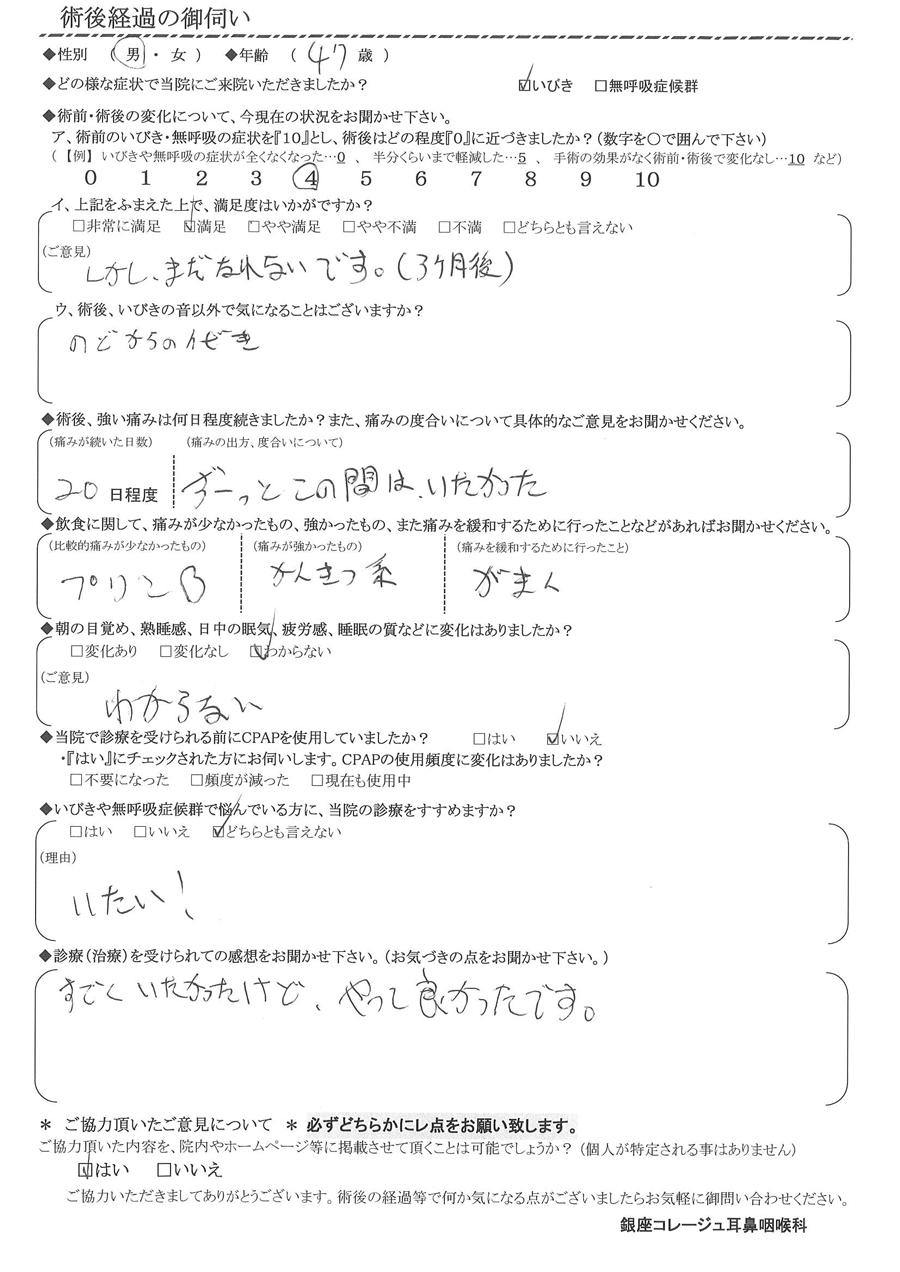 術後経過の御伺い
◆性別 （ 男 ・ 女 ） ◆年齢 （ 47 歳 ）
◆どの様な症状で当院にご来院いただきましたか？ ☑いびき □無呼吸症候群
◆術前・術後の変化について、今現在の状況をお聞かせ下さい。
ア、術前のいびき・無呼吸の症状を『10』とし、術後はどの程度『0』に近づきましたか？（数字を〇で囲んで下さい）
（【例】いびきや無呼吸の症状が全くなくなった…0 、 半分くらいまで軽減した…5 、 手術の効果がなく術前・術後で変化なし…10 など）
0 1 2 3 4 5 6 7 8 9 10
イ、上記をふまえた上で、満足度はいかがですか？
□非常に満足 ☑満足 □やや満足 □やや不満 □不満 □どちらとも言えない
（ご意見）
しかし、まだなれないです。（3ヶ月後）
ウ、術後、いびきの音以外で気になることはございますか？
のどからのせき
◆術後、強い痛みは何日程度続きましたか？また、痛みの度合いについて具体的なご意見をお聞かせください。
（痛みが続いた日数） （痛みの出方、度合いについて）
20 日程度 ずーっとこの間は、いたかった
◆飲食に関して、痛みが少なかったもの、強かったもの、また痛みを緩和するために行ったことなどがあればお聞かせください。
（比較的痛みが少なかったもの） （痛みが強かったもの） （痛みを緩和するために行ったこと）
プリン かんきつ系 がまん
◆朝の目覚め、熟睡感、日中の眠気、疲労感、睡眠の質などに変化はありましたか？
□変化あり □変化なし ☑わからない
（ご意見）
わからない
◆当院で診療を受けられる前にCPAPを使用していましたか？ □はい ☑いいえ
・『はい』にチェックされた方にお伺いします。CPAPの使用頻度に変化はありましたか？
□不要になった □頻度が減った □現在も使用中
◆いびきや無呼吸症候群で悩んでいる方に、当院の診療をすすめますか？
□はい □いいえ ☑どちらとも言えない
（理由）
いたい！
◆診療（治療）を受けられての感想をお聞かせ下さい。（お気づきの点をお聞かせ下さい。）
すごくいたかったけど、やって良かったです。
＊ ご協力頂いたご意見について ＊ 必ずどちらかにレ点をお願い致します。
ご協力頂いた内容を、院内やホームページ等に掲載させて頂くことは可能でしょうか？（個人が特定される事はありません）
☑はい □いいえ
ご協力いただきましてありがとうございます。術後の経過等で何か気になる点がございましたらお気軽に御問い合わせください。
銀座コレージュ耳鼻咽喉科